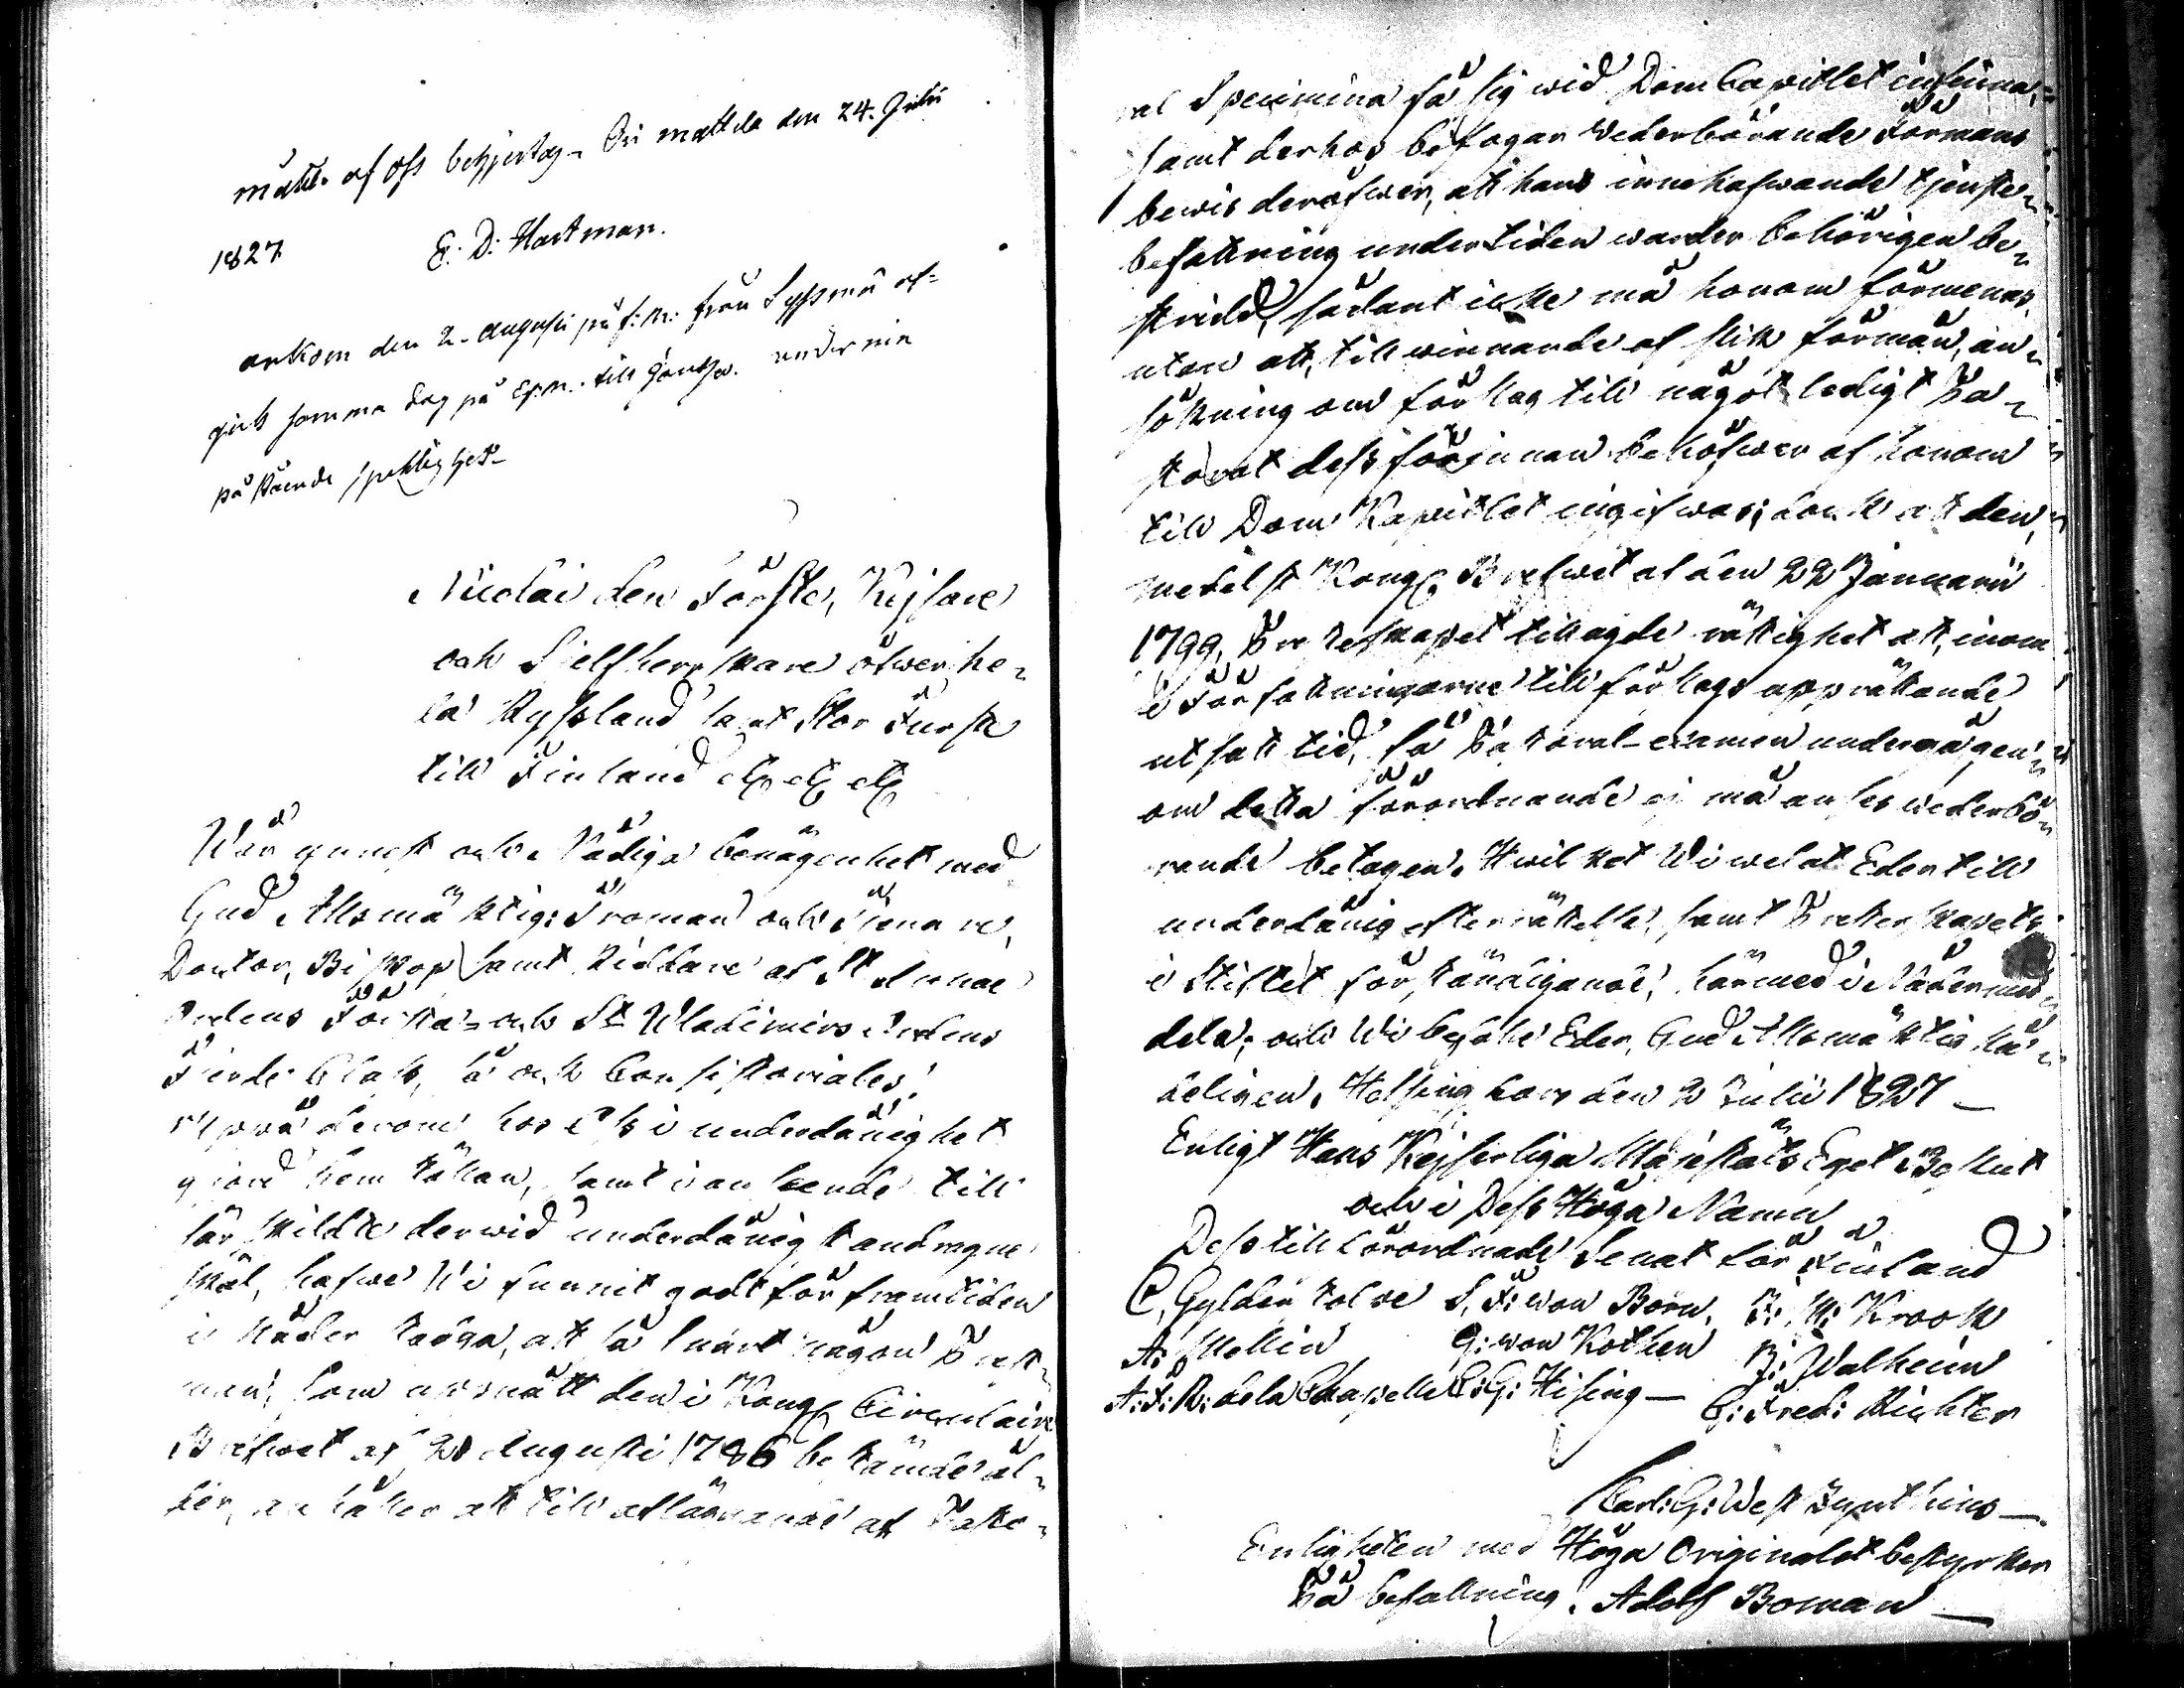 måtte af oss behjertas. Ori mattila den 24. Julii
1827. E: D: Hartman.
ankom den 2. augusti på f: m: från Syssmä af-
gick samma dag på Ef.m. till Jamsä. under min
påskrende skyldighet
Nicolai den Förste, Kejsare
och Sjelfherrskare öfwer he-
la Ryssland samt Stor Furste
till Finland etc etc etc
Wår ynnest och Nådiga benägenhet med
Gud Allsmäktig: Troman och Tjenare,
Doctor, Biskop samt Riddare af St Annae
Ordens Första- och St Wladimirs Ordens
Fierde Class, så och Consistoriales!
Uppå derom hos Oss i underdånighet
giord hemställan, samt i anseende till
särskilde derwid underdånigst andragne
skäl, hafwe Wi funnit godt för framtiden
i Nåder stadga, att så snart någon Prest-
man, som uppnått den i Kongl Circulaire
Brefwet af 20 Augusti 1786 bestämde ål-
der, anhåller att till afläggande af Pasto-
ral Specimina få sig wid DomCapitlet infinna,
samt derhos bifogar wederbörande Förmans
bewis deröfwer, att hans innehafwande tjenste-
befattning under tiden warder behörigen be-
stridd, sådant icke må honom förmenas,
utan att, till winnande af slik förmån, an-
sökning om förslag till något ledigt Pa-
storat dessförinnan behöfwer af honom
till DomKapitlet ingifwas; dock att den,
medelst Kongl Brefwet af den 22 Januarii
1799, Presterskapet tillagde rättighet att, inom
i Författningarne till förslags upprättande
utsatt tid, få Pastoral-examen undergå, gen-
om detta förordnande ej må anses wederbö-
rande betagen. Hwilket Wi welat Eder till
underdånig efterrättelse, samt Presterskapets
i Stiftet förständigande, härmed i Nåder med-
dela; och Wi befalle Eder, Gud Allsmäktig Nå-
deligen. Helsingfors den 2 Julii 1827 —
Enligt Hans Kejserliga Majestäts Eget Beslut
och i Dess Höga Namn
Dess tillförordnade Senat för Finland
C, Gyldenstolpe S, F: von Born. F: W: Krook
A: Mollin G: von Kothen J: Walheim
A: F: R: de la Chapelle C: G: Hising — C: Fred: Richter
Carl: G: Westzynthius —
Enligheten med Höga Originalet bestyrker
På befallning: Adolf Boman —